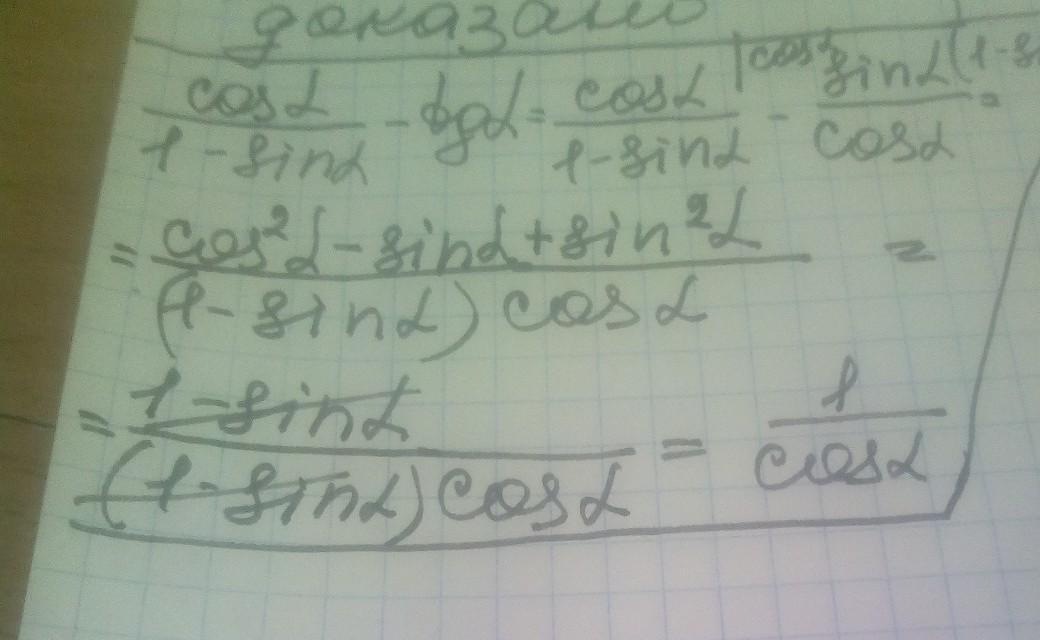 доказано
cosα/(1-sinα) - tgα = cosα/(1-sinα) |cosα - sinα/cosα |1-si =
= (cos²α - sinα + sin²α)/((1-sinα) cosα) =
= (1-sinα)/((1-sinα) cosα) = 1/cosα